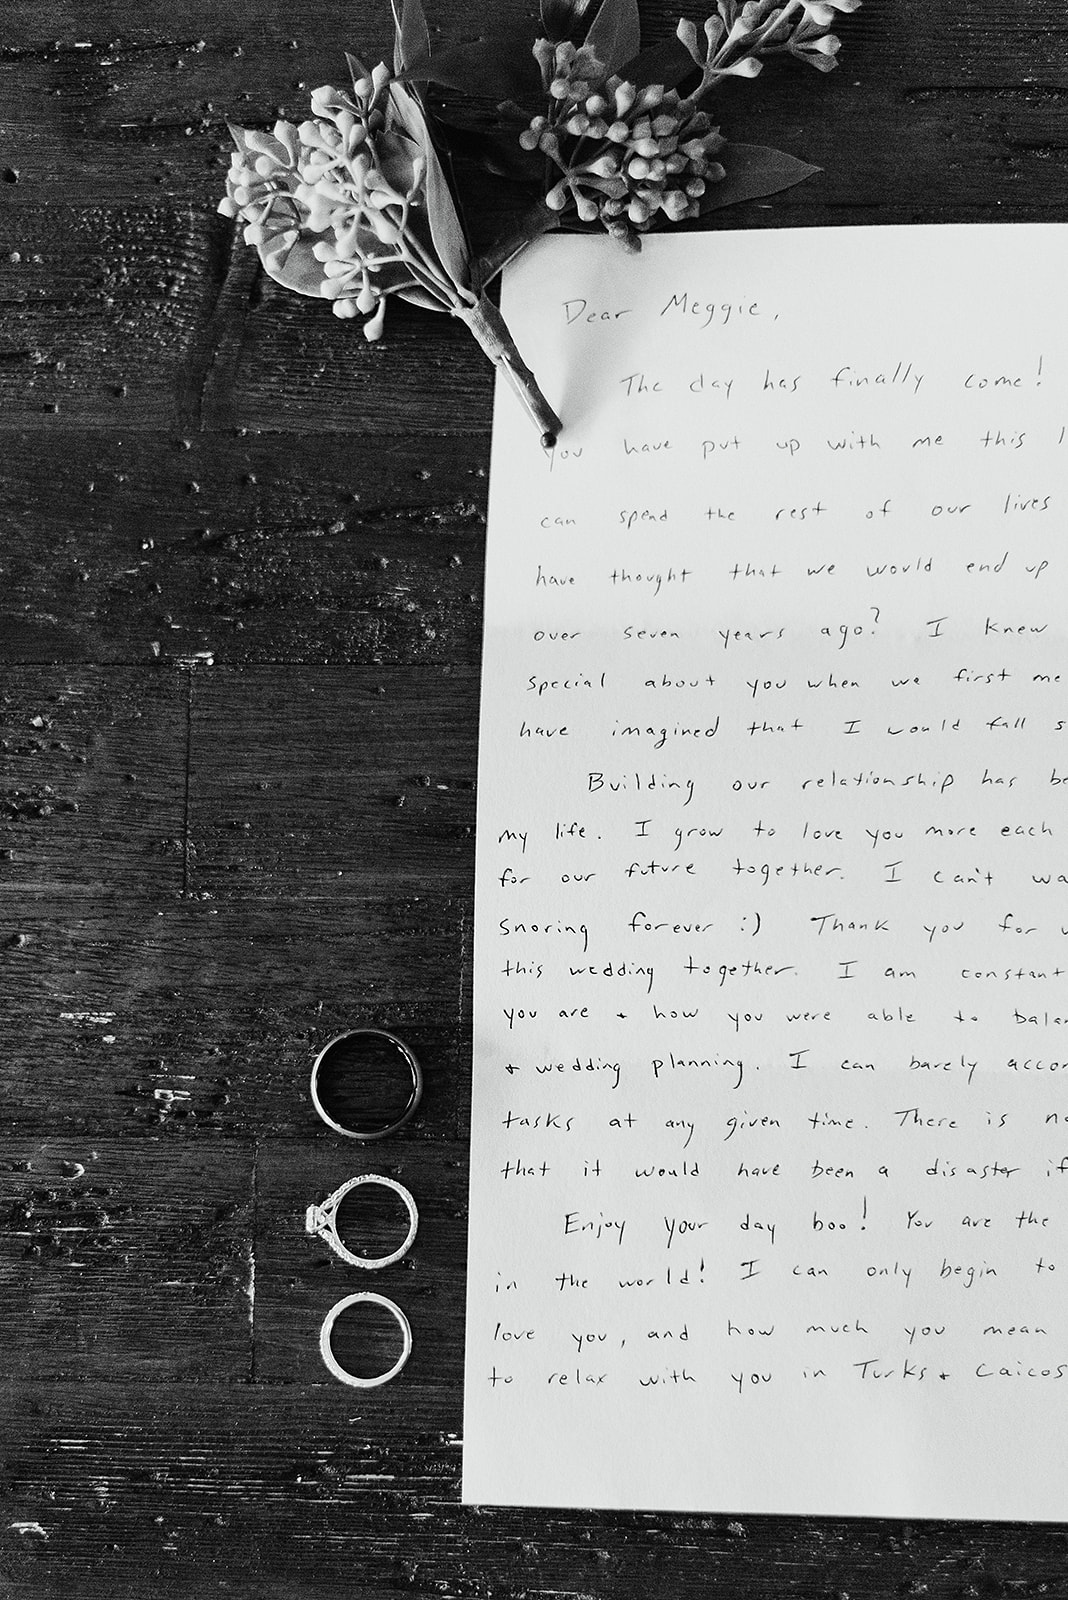 Dear Meggie,
The day has finally come!
You have put up with me this
can spend the rest of our lives
have thought that we would end up
over seven years ago? I knew
special about you when we first me
have imagined that I would fall s
Building our relationship has be
my life. I grow to love you more each
for our future together. I can't wa
snoring forever :) Thank you for
this wedding together. I am constant
you are + how you were able to balan
+ wedding planning. I can barely accom
tasks at any given time. There is no
that it would have been a disaster if
Enjoy your day boo! You are the
in the world! I can only begin to
love you, and how much you mean
to relax with you in Turks + Caicos